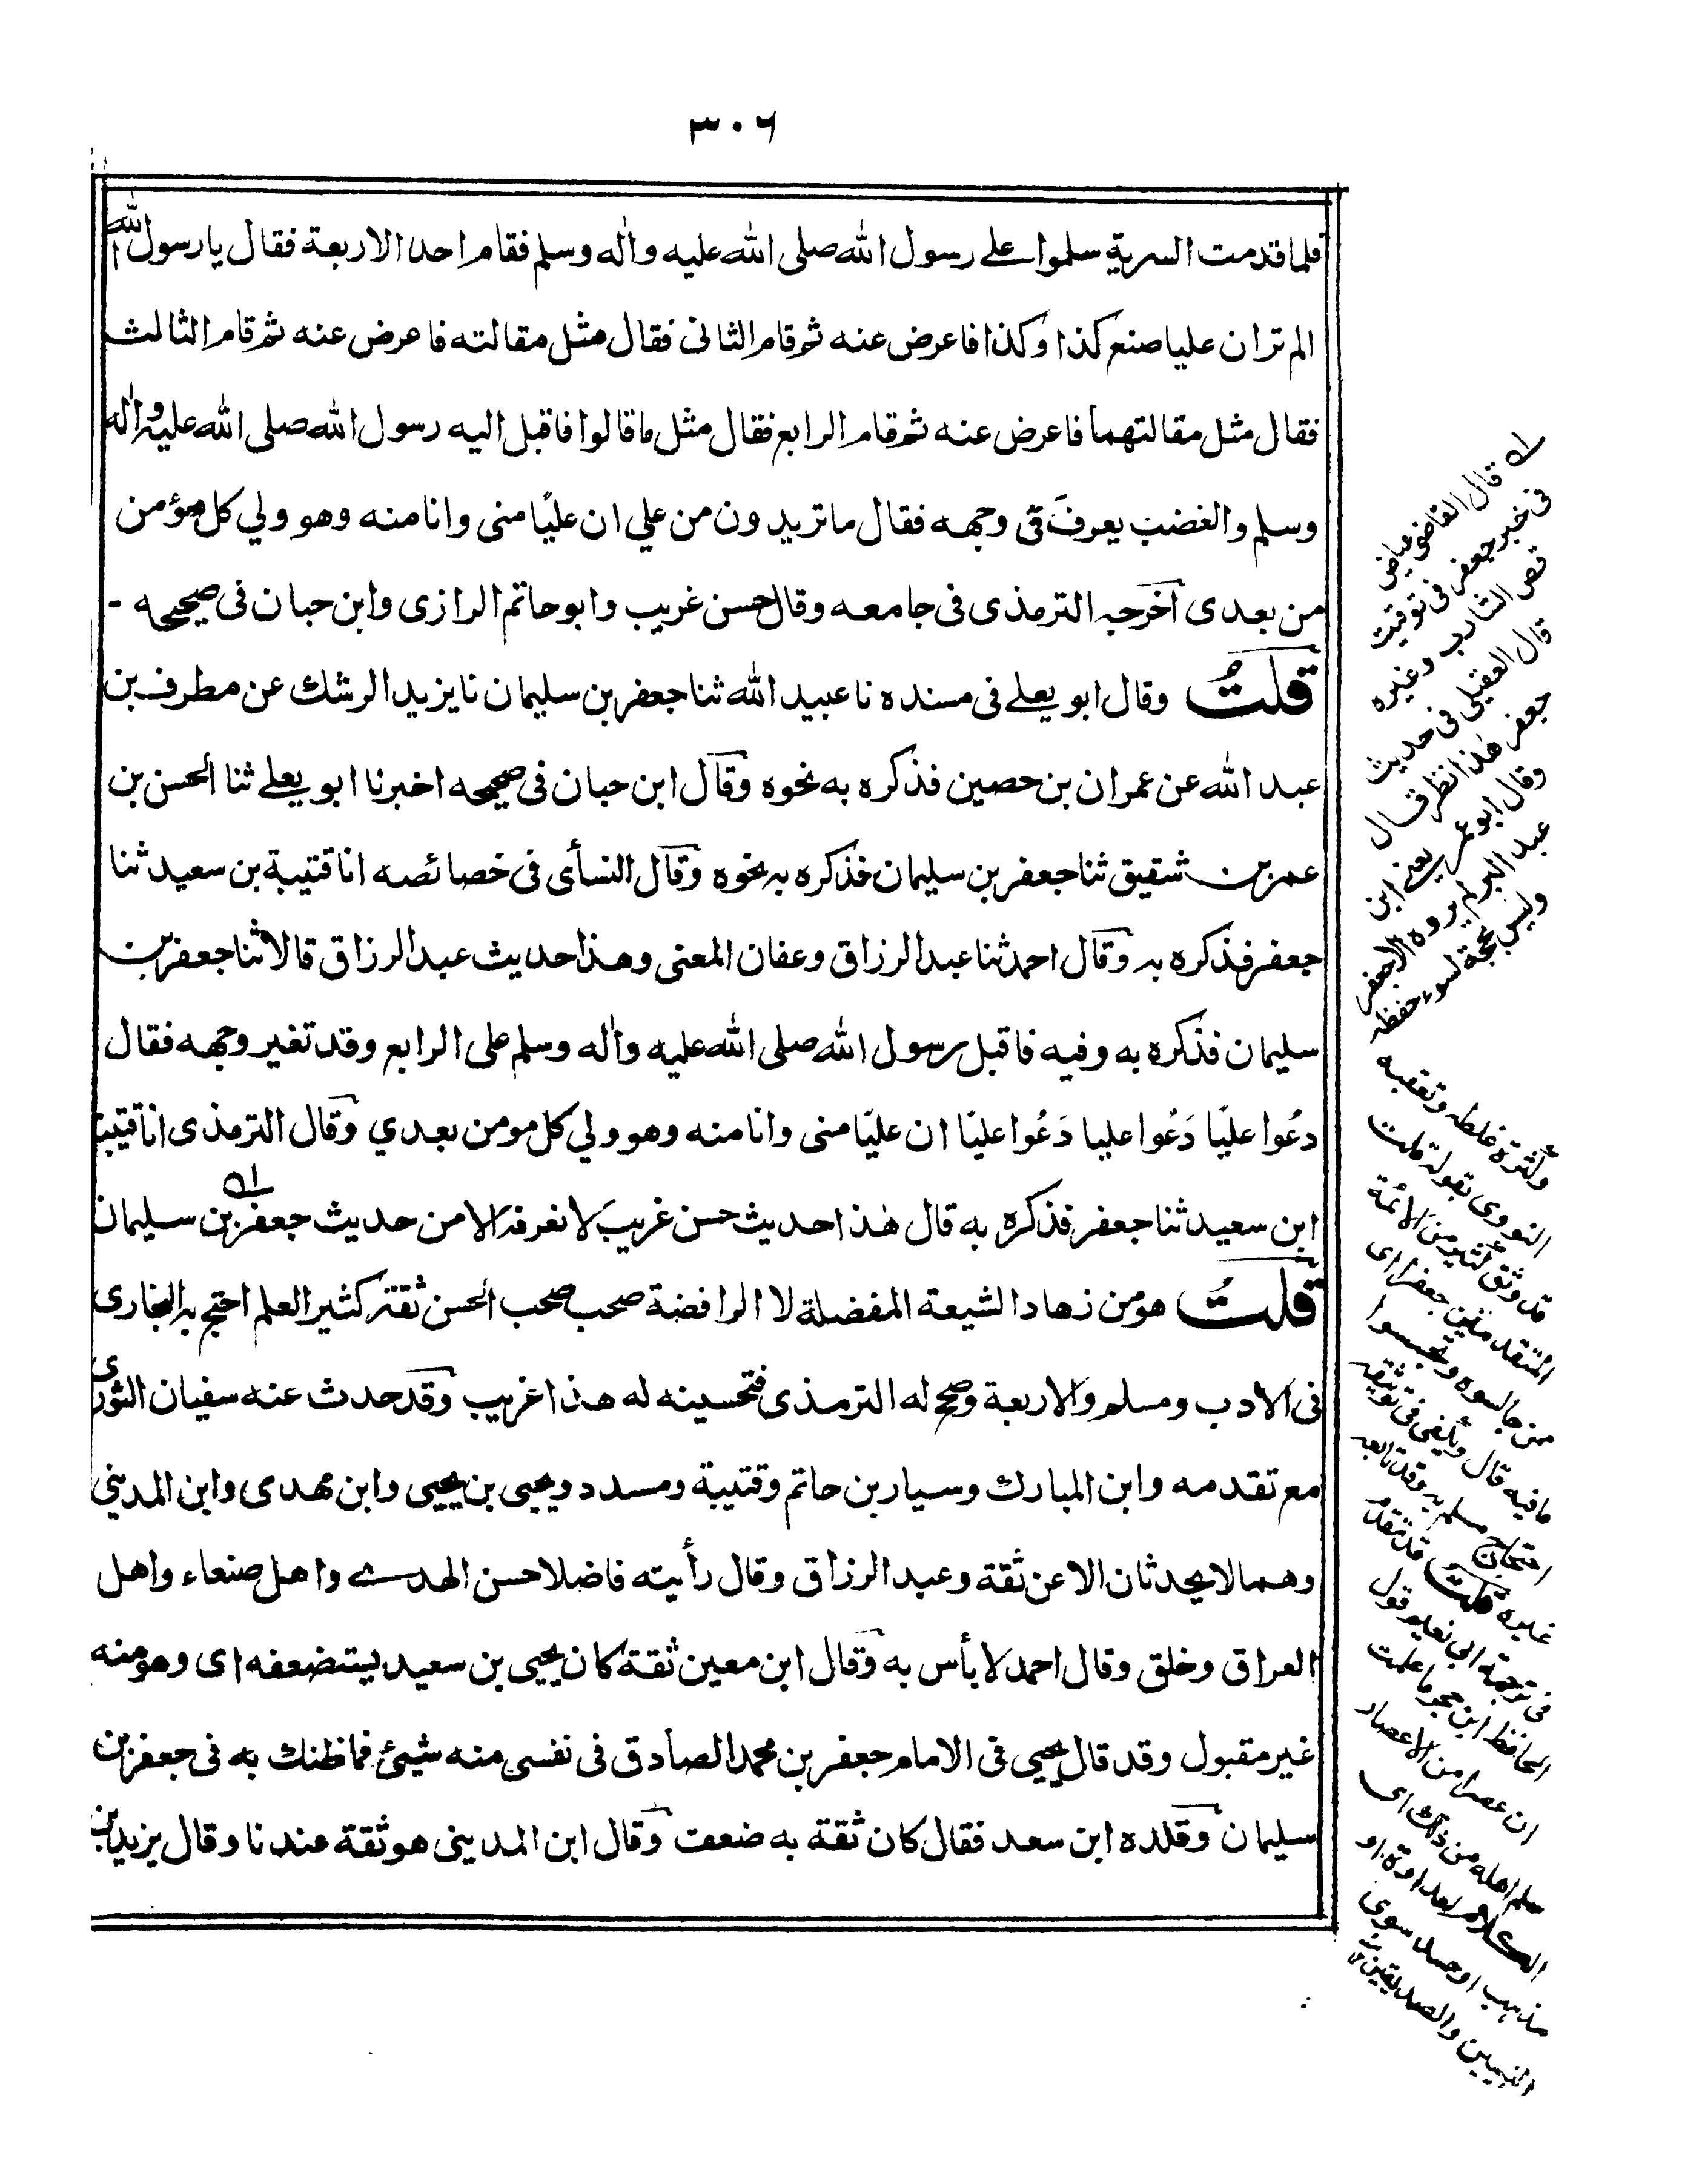 ٣٠٦
فلما قدمت السرية سلموا على رسول الله صلى الله عليه واله وسلم فقام احد الاربعة فقال يا رسول الله
الم تر ان عليا صنع كذا وكذا فاعرض عنه ثم قام الثانى فقال مثل مقالته فاعرض عنه ثم قام الثالث
فقال مثل مقالتهما فاعرض عنه ثم قام الرابع فقال مثل ما قالوا فاقبل اليه رسول الله صلى الله عليه واله
وسلم والغضب يعرف فى وجهه فقال ما تريدون من علي ان عليًا منى وانا منه وهو ولي كل مؤمن
من بعدى اخرجه الترمذى فى جامعه وقال حسن غريب وابو حاتم الرازى وابن حبان فى صحيحه -
قلتُ وقال ابو يعلے فى مسنده نا عبيد الله ثنا جعفر بن سليمان نا يزيد الرشك عن مطرف بن
عبد الله عن عمران بن حصين فذكره به نحوه وقال ابن حبان فى صحيحه اخبرنا ابو يعلے ثنا الحسن بن
عمر بن شقيق ثنا جعفر بن سليمان فذكره به نحوه وقال النسأى فى خصائصه انا قتيبة بن سعيد ثنا
جعفر فذكره به وقال احمد ثنا عبد الرزاق وعفان المعنى وهذا حديث عبد الرزاق قالا ثنا جعفر بن
سليمان فذكره به وفيه فاقبل رسول الله صلى الله عليه واله وسلم على الرابع وقد تغير وجهه فقال
دعُوا عليًا دَعُوا عليا دَعُوا عليًا ان عليًا منى وانا منه وهو ولي كل مومن بعدي وقال الترمذى انا قتيبة
ابن سعيد ثنا جعفر فذكره به قال هذا حديث حسن غريب لا نعرفه الا من حديث جعفر بن سليمان
قلتُ هو من زهاد الشيعة المفضلة لا الرافضة صحب صحب الحسن ثقة كثير العلم احتج به البخارى
فى الادب ومسلم والاربعة وصحح له الترمذى فتحسينه له هذا غريب وقد حدث عنه سفيان الثورى
مع تقدمه وابن المبارك وسيار بن حاتم وقتيبة ومسدد ويحيى بن يحيى وابن مهدى وابن المديني
وهما لا يحدثان الا عن ثقة وعبد الرزاق وقال رأيته فاضلا حسن الهدے واهل صنعاء واهل
العراق وخلق وقال احمد لا بأس به وقال ابن معين ثقة كان يحيى بن سعيد يستضعفه اى وهو منه
غير مقبول وقد قال يحيى فى الامام جعفر بن محمد الصادق فى نفسى منه شيئ فما ظنك به فى جعفر بن
سليمان وقلده ابن سعد فقال كان ثقة به ضعف وقال ابن المدينى هو ثقة عندنا وقال يزيد بن
قال القاضى عياض
فى خبر جعفر فى توقيت
قص الشارب وغيره
قال العقيلى فى حديث
جعفر هذا نظر قال
وقال ابو عمر يعنے ابن
عبد البر لم يروه الا جعفر
وليس بحجة لسوء حفظه
وكثرة غلطه وتعقبه
النووى بقوله قلت
قد وثق كثير من الائمة
المتقدمين جعفرا اى
ممن جالسوه وتحسسوا
ما فيه قال ويكفى فى توثيقه
احتجاج مسلم به وقد تابعه
غيره قلت قد تقدم
فى ترجمة ابى نعيم قول
الحافظ ابن حجر ما علمت
ان عصرا من الاعصار
سلم اهله من ذلك اى
الكلام لعداوة او
مذهب او حسد سوى
النبيين والصديقين